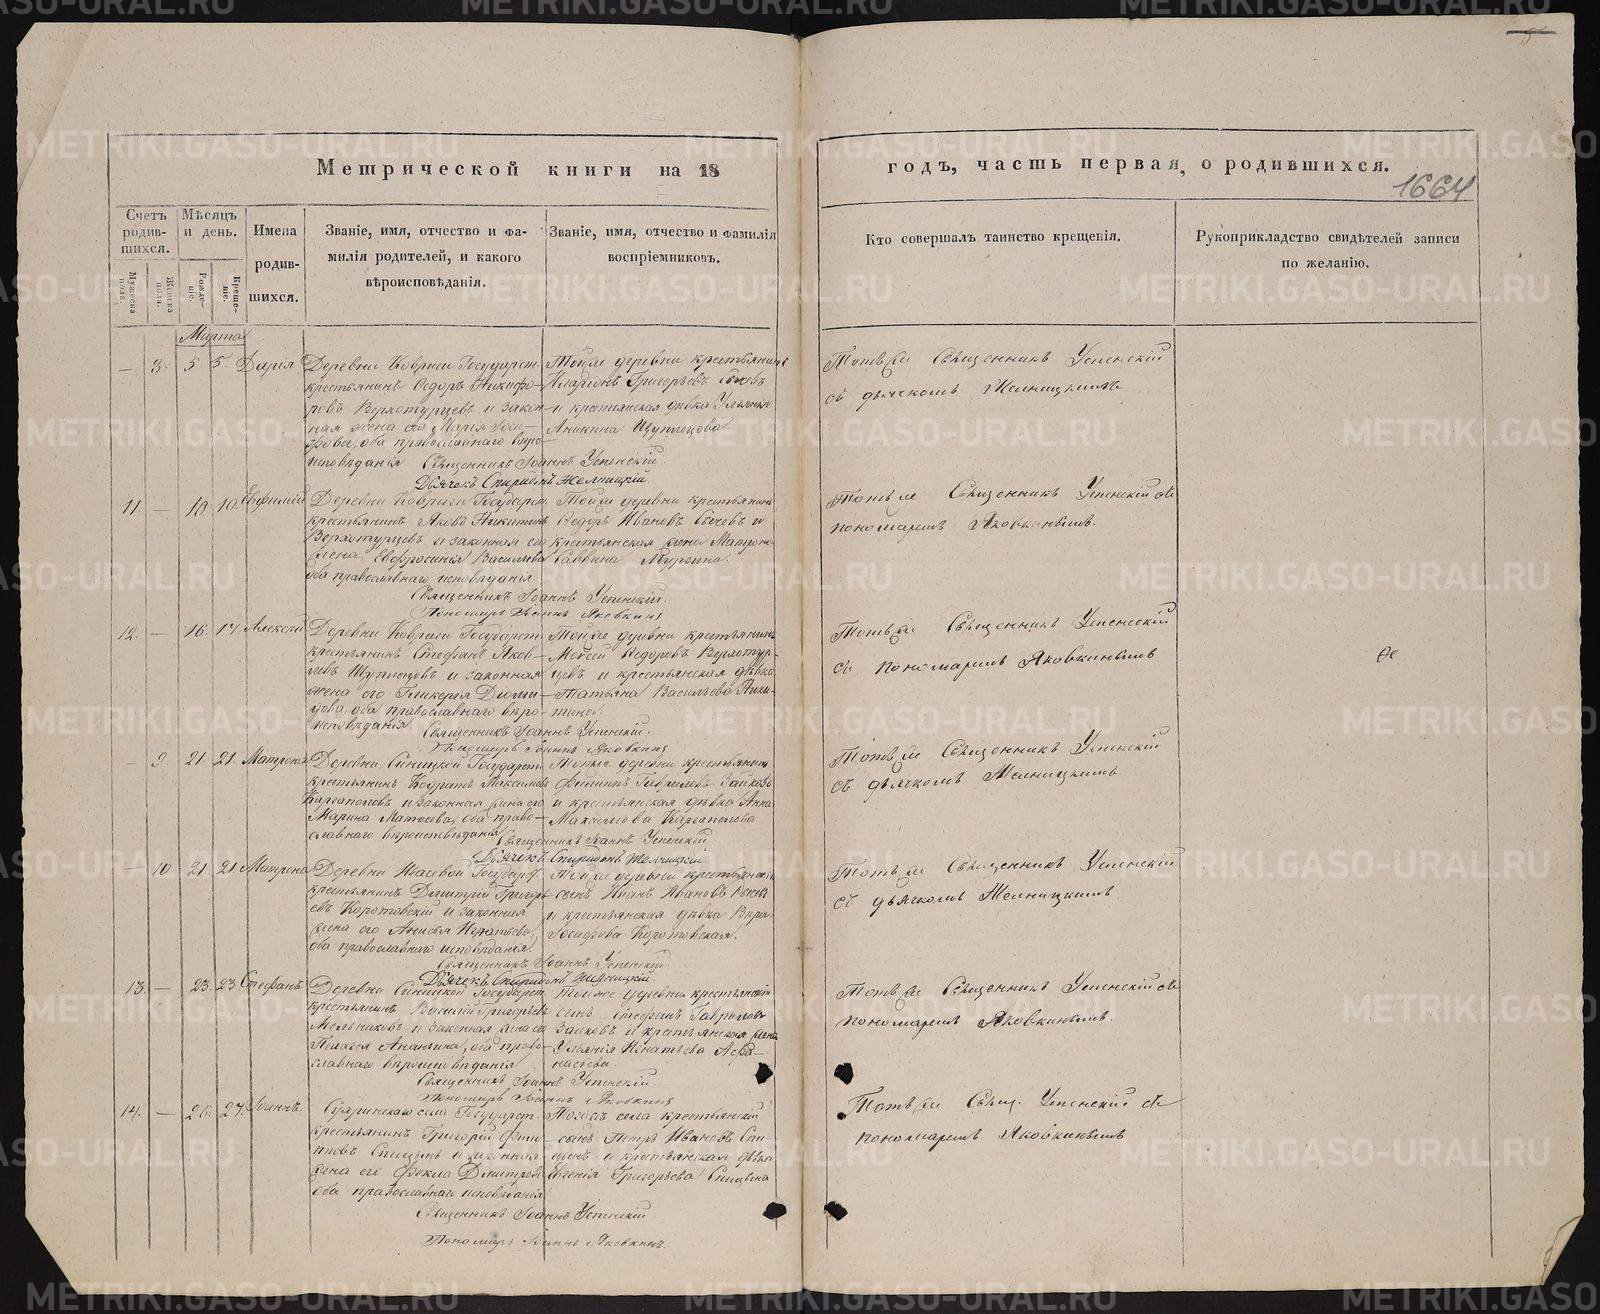 Метрической книги на 18
годъ, часть первая, о родившихся.
1664
Счетъ родившихся.
Мужеска пола.
Женска пола.
Мѣсяцъ и день.
Рожденіе.
Крещеніе.
Имена родившихся.
Званіе, имя, отчество и фамилія родителей, и какого вѣроисповѣданія.
Званіе, имя, отчество и фамилія воспріемниковъ.
Кто совершалъ таинство крещенія.
Рукоприкладство свидѣтелей записи по желанію.
Марта
— 8. 5 5. Дарія
Деревни Ковриги Государст.
крестьянинъ Ѳедоръ Никифо-
ровъ Верхотурцевъ и закон-
ная жена его Марія Іоси-
фова, оба православнаго вѣро-
исповѣданія
Тойже деревни крестьянинъ
Иларіонъ Григорьевъ
и крестьянская дѣвка Ульяна
Аникина Щуплецова
Священникъ Іоаннъ Успенскій
Дьячекъ Спиридонъ Желницкій
Тотъ же Священникъ Успенскій
съ дьячкомъ Желницкимъ
11 — 10 10. Евфимій
Деревни Ковриги Государст.
крестьянинъ Яковъ Никитинъ
Верхотурцевъ и законная его
жена, Евфросинія Васильева
оба православнаго исповѣданія
Тойже деревни крестьянинъ
Ѳедоръ Ивановъ Сычевъ и
крестьянская жена Матрона
Саввина
Священникъ Іоаннъ Успенскій.
Пономарь Іоаннъ Яковкинъ
Тотъ же Священникъ Успенскій съ
пономаремъ Яковкинымъ.
12. — 16. 17. Алексѣй
Деревни Ковриги Государст.
крестьянинъ Стефанъ Яков-
левъ Щуплецовъ и законная
жена его Гликерія
оба православнаго вѣро-
исповѣданія.
Тойже деревни крестьянинъ
Моисей Ѳедоровъ Верхотур-
цевъ и крестьянская дѣвка
Татьяна Васильева Ники-
тина.
Священникъ Іоаннъ Успенскій.
Пономарь Іоаннъ Яковкинъ
Тотъ же Священникъ Успенскій
съ пономаремъ Яковкинымъ
— 9. 21. 21. Матрона
Деревни Синицкой Государст.
крестьянинъ Кодратъ Максимовъ
Каргаполовъ и законная жена его
Марина Матвеева, оба право-
славнаго вѣроисповѣданія
Тойже деревни крестьянинъ
Филиппъ Гавриловъ Зайковъ
и крестьянская дѣвка Анна
Максимова Каргаполова
Священникъ Іоаннъ Успенскій
Дьячекъ Спиридонъ Желницкій.
Тотъ же Священникъ Успенскій
съ дьячкомъ Желницкимъ
— 10 21. 21 Матрона
Деревни Государст.
крестьянинъ Дмитрій Григорь-
евъ Коротовскій и законная
жена его Анисья Игнатьева,
оба православнаго исповѣданія.
Тойже деревни крестьянскій
сынъ Иванъ Ивановъ
и крестьянская дѣвка Вѣра
Іосифова Коротовская.
Священникъ Іоаннъ Успенскій
Дьячекъ Спиридонъ Желницкій
Тотъ же Священникъ Успенскій
съ дьячкомъ Желницкимъ
13. — 23. 23 Стефанъ
Деревни Синицкой Государст.
крестьянинъ Василій Григорьевъ
Мельниковъ и законная жена его
Пелагея Ананьина, оба право-
славнаго вѣроисповѣданія
Тойже деревни крестьянскій
сынъ Стефанъ Гавриловъ
Зайковъ и крестьянская жена
Ульянія Игнатьева Аѳа-
насьева.
Священникъ Іоаннъ Успенскій.
Пономарь Іоаннъ Яковкинъ
Тотъ же Священникъ Успенскій съ
пономаремъ Яковкинымъ.
14. — 26. 27. Іоаннъ.
села Государст.
крестьянинъ Григорій Филип-
повъ Спицынъ и законная
жена его Ѳекла Дмитрова
оба православнаго исповѣданія
Тогожъ села крестьянскій
сынъ Петръ Ивановъ Спи-
цынъ и крестьянская дѣвка
Евгенія Григорьева Спицына
Священникъ Іоаннъ Успенскій
Пономарь Іоаннъ Яковкинъ.
Тотъ же Свящ. Успенскій съ
пономаремъ Яковкинымъ
METRIKI.GASO-URAL.RU